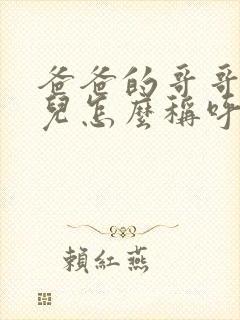 爸爸的哥哥
兒怎麼稱呼
賴紅燕